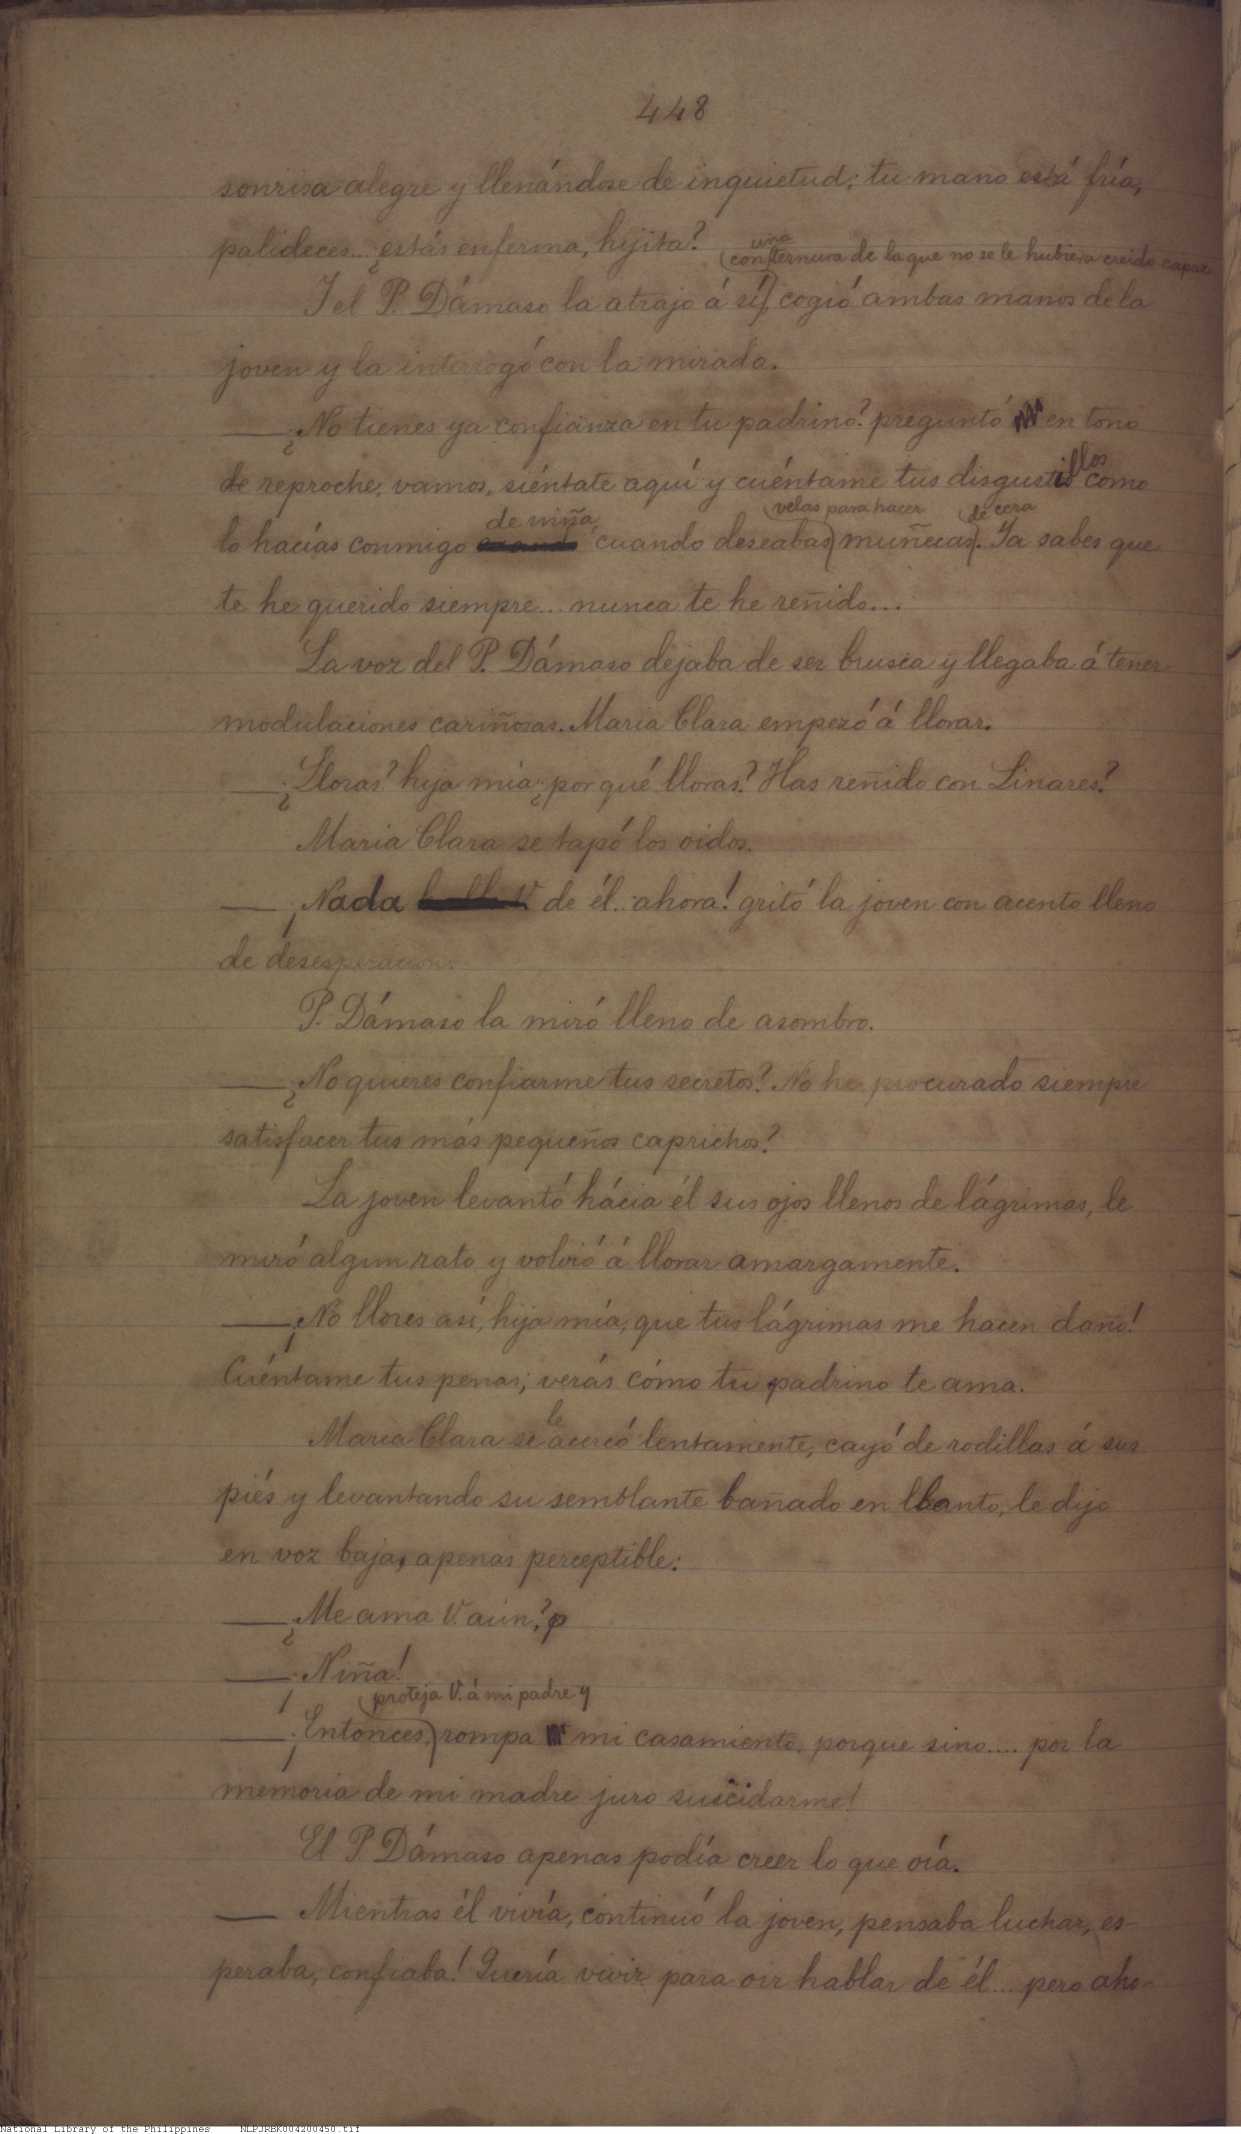 448
sonrisa alegre y llenándose de inquietud; tu mano está fría,
palideces... ¿estás enferma, hijita?
una
con ternura de la que no se le hubiera creido capaz
Y el P. Dámaso la atrajo á sí, cogió ambas manos de la
joven y la interrogó con la mirada.
— ¿No tienes ya confianza en tu padrino? preguntó en tono
illos
de reproche; vamos, siéntate aquí y cuéntame tus disgustillos como
velas para hacer de cera
de niña,
lo hacías conmigo cuando deseabas muñecas. Ya sabes que
te he querido siempre... nunca te he reñido...
La voz del P. Dámaso dejaba de ser brusca y llegaba á tener
modulaciones cariñosas. Maria Clara empezó á llorar.
— ¿Lloras? hija mía ¿por qué lloras? Has reñido con Linares?
Maria Clara se tapó los oidos.
— ¡Nada de él.. ahora! gritó la joven con acento lleno
de desesperacion.
P. Dámaso la miró lleno de asombro.
— ¿No quieres confiarme tus secretos? No he procurado siempre
satisfacer tus más pequeños caprichos?
La joven levantó hácia él sus ojos llenos de lágrimas, le
miró algun rato y volvió á llorar amargamente.
— ¡No llores así, hija mía, que tus lágrimas me hacen daño!
Cuéntame tus penas; verás cómo tu padrino te ama.
le
Maria Clara se acercó lentamente, cayó de rodillas á sus
piés y levantando su semblante bañado en llanto, le dijo
en voz baja, apenas perceptible:
— ¿Me ama V. aún?
— ¡Niña!
proteja V. á mi padre y
— ¡Entonces, rompa mi casamiento, porque sino.... por la
memoria de mi madre juro suicidarme!
El P. Dámaso apenas podía creer lo que oía.
— Mientras él vivía, continuó la joven, pensaba luchar, es-
peraba, confiaba! Quería vivir para oir hablar de él... pero aho-
National Library of the Philippines NLPJRBK004200450.tif